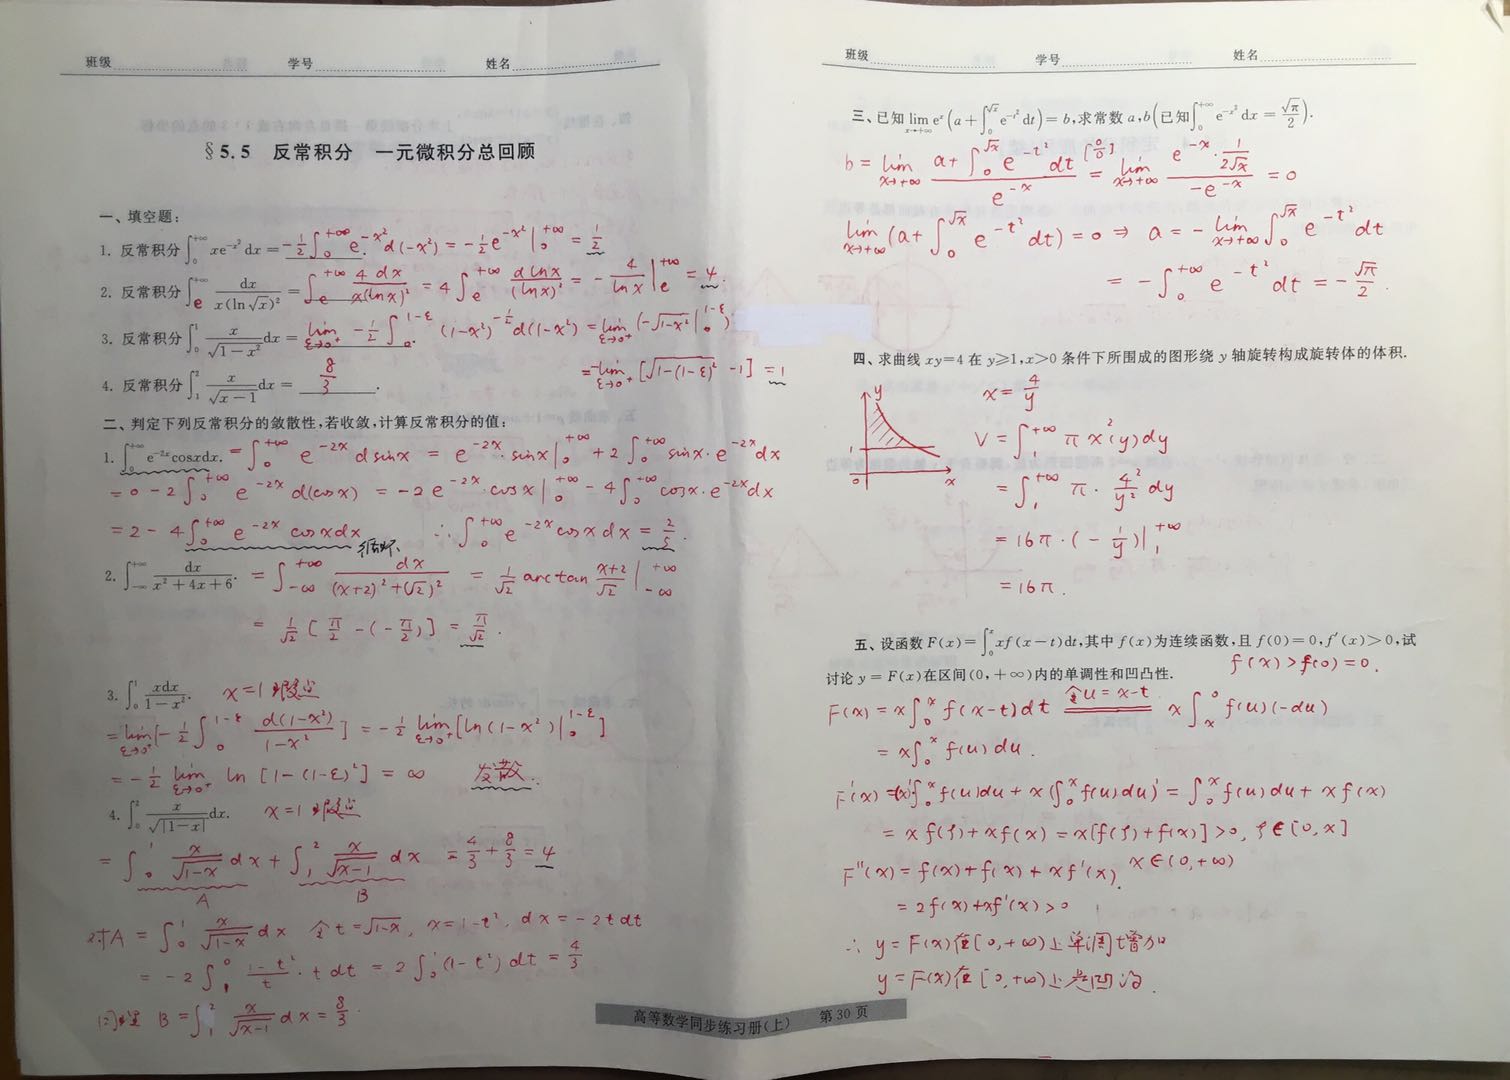 班级 学号 姓名
§5.5 反常积分 一元微积分总回顾
一、填空题:
1. 反常积分∫₀^{+∞} xe^{-x²}dx = -1/2∫₀^{+∞} e^{-x²}d(-x²) = -1/2 e^{-x²}|₀^{+∞} = 1/2
2. 反常积分∫_e^{+∞} dx/(x(ln√x)²) = ∫_e^{+∞} 4dx/(x(lnx)²) = 4∫_e^{+∞} dlnx/(lnx)² = -4/lnx|_e^{+∞} = 4.
3. 反常积分∫₀¹ x/√(1-x²) dx = lim_{ε→0⁺} -1/2∫₀^{1-ε} (1-x²)^{-1/2}d(1-x²) = lim_{ε→0⁺} (-√(1-x²)|₀^{1-ε})
= -lim_{ε→0⁺} [√(1-(1-ε)²) -1] = 1
4. 反常积分∫₁² x/√(x-1) dx = 8/3 .
二、判定下列反常积分的敛散性,若收敛,计算反常积分的值:
1. ∫₀^{+∞} e^{-2x}cosxdx. = ∫₀^{+∞} e^{-2x} dsinx = e^{-2x}·sinx|₀^{+∞} + 2∫₀^{+∞} sinx·e^{-2x}dx
= 0 - 2∫₀^{+∞} e^{-2x} d(cosx) = -2e^{-2x}·cosx|₀^{+∞} - 4∫₀^{+∞} cosx·e^{-2x}dx
= 2 - 4∫₀^{+∞} e^{-2x} cosxdx 循环 ∴ ∫₀^{+∞} e^{-2x}cosxdx = 2/5.
2. ∫_{-∞}^{+∞} dx/(x²+4x+6). = ∫_{-∞}^{+∞} dx/((x+2)²+(√2)²) = 1/√2 arctan (x+2)/√2 |_{-∞}^{+∞}
= 1/√2 [π/2 -(-π/2)] = π/√2.
3. ∫₀¹ xdx/(1-x²). x=1 瑕点
= lim_{ε→0⁺}[-1/2∫₀^{1-ε} d(1-x²)/(1-x²)] = -1/2 lim_{ε→0⁺}[ln(1-x²)|₀^{1-ε}]
= -1/2 lim_{ε→0⁺} ln[1-(1-ε)²] = ∞ 发散.
4. ∫₀² x/√|1-x| dx. x=1 瑕点
= ∫₀¹ x/√(1-x) dx + ∫₁² x/√(x-1) dx = 4/3 + 8/3 = 4
A B
对A = ∫₀¹ x/√(1-x) dx 令t=√(1-x), x=1-t², dx=-2tdt
= -2∫₁⁰ (1-t²)/t · tdt = 2∫₀¹(1-t²)dt = 4/3
同理 B = ∫₁² x/√(x-1) dx = 8/3.
班级 学号 姓名
三、已知lim_{x→+∞} e^x(a+∫₀^{√x} e^{-t²}dt)=b,求常数a,b(已知∫₀^{+∞} e^{-x²}dx=√π/2).
b = lim_{x→+∞} (a+∫₀^{√x} e^{-t²}dt)/e^{-x} [0/0] = lim_{x→+∞} (e^{-x}·1/(2√x))/(-e^{-x}) = 0
lim_{x→+∞}(a+∫₀^{√x} e^{-t²}dt) = 0 ⇒ a = -lim_{x→+∞}∫₀^{√x} e^{-t²}dt
= -∫₀^{+∞} e^{-t²}dt = -√π/2.
四、求曲线xy=4在y≥1,x>0条件下所围成的图形绕y轴旋转构成旋转体的体积.
y 1 0 x
x = 4/y
V = ∫₁^{+∞} πx²(y)dy
= ∫₁^{+∞} π·4²/y² dy
= 16π·(-1/y)|₁^{+∞}
= 16π.
五、设函数F(x)=∫₀^x xf(x-t)dt,其中f(x)为连续函数,且f(0)=0,f′(x)>0,试
讨论y=F(x)在区间(0,+∞)内的单调性和凹凸性. f(x)>f(0)=0.
F(x) = x∫₀^x f(x-t)dt 令u=x-t x∫_x^0 f(u)(-du)
= x∫₀^x f(u)du.
F′(x) = (x)′∫₀^x f(u)du + x(∫₀^x f(u)du)′ = ∫₀^x f(u)du + xf(x)
= xf(ξ)+xf(x) = x[f(ξ)+f(x)]>0, ξ∈[0,x]
F″(x) = f(x)+f(x)+xf′(x). x∈(0,+∞)
= 2f(x)+xf′(x)>0
∴ y=F(x)在[0,+∞)上单调增加
y=F(x)在[0,+∞)上是凹的.
高等数学同步练习册(上) 第30页